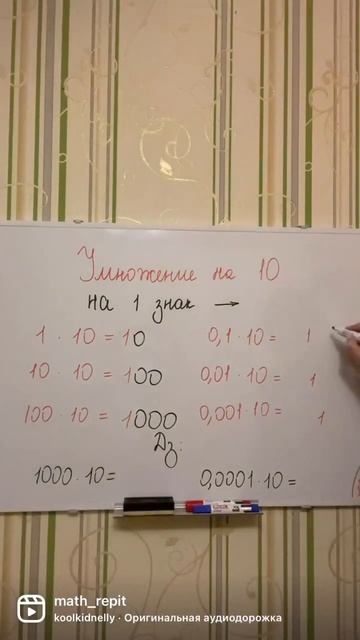 Умножение на 10
на 1 знак →
1 · 10 = 10
0,1 · 10 = 1
10 · 10 = 100
0,01 · 10 = 1
100 · 10 = 1000
0,001 · 10 = 1
Дз:
1000 · 10 =
0,0001 · 10 =
math_repit
koolkidnelly · Оригинальная аудиодорожка